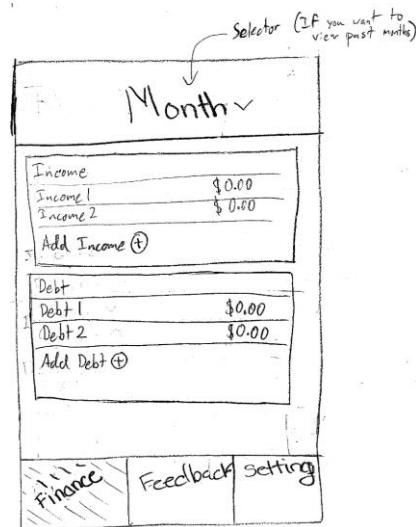 Selector (If you want to
view past months)
Month
Income
Income 1 $0.00
Income 2 $0.00
Add Income +
Debt
Debt 1 $0.00
Debt 2 $0.00
Add Debt +
Finance Feedback Setting